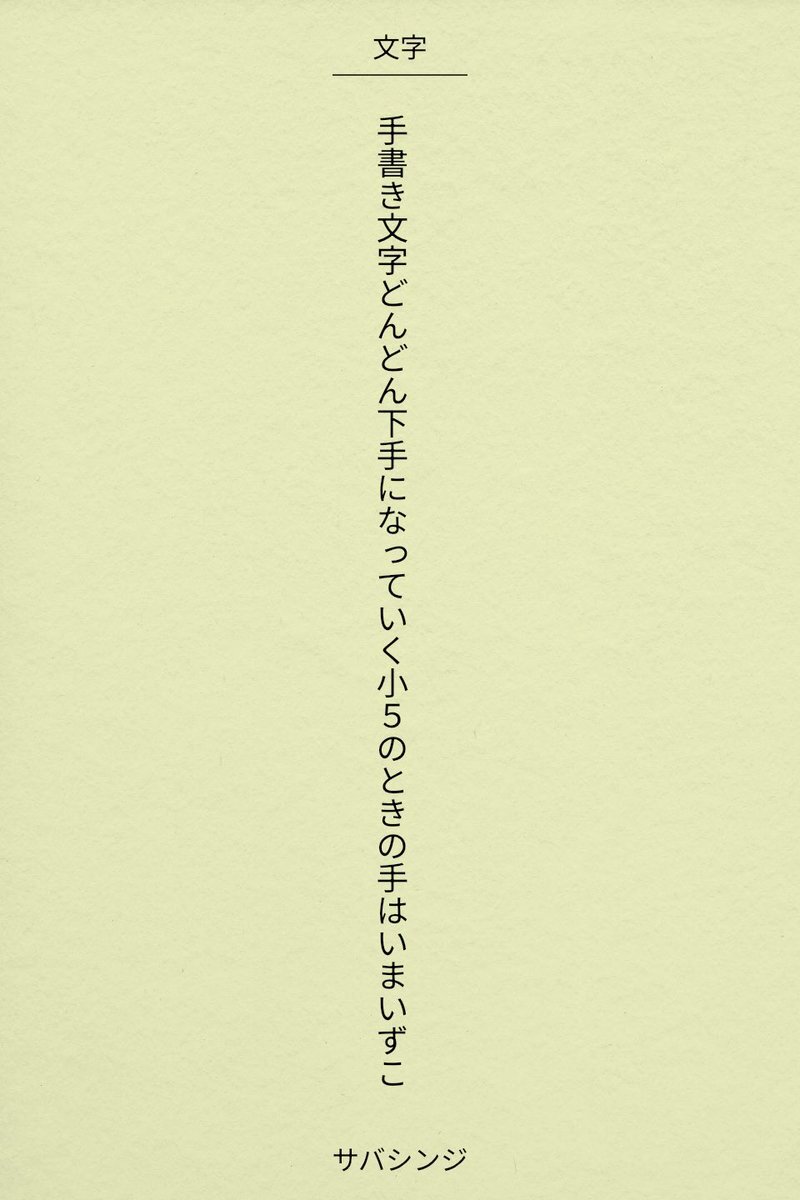 文字
手書き文字どんどん下手になっていく小５のときの手はいまいずこ
サバシンジ